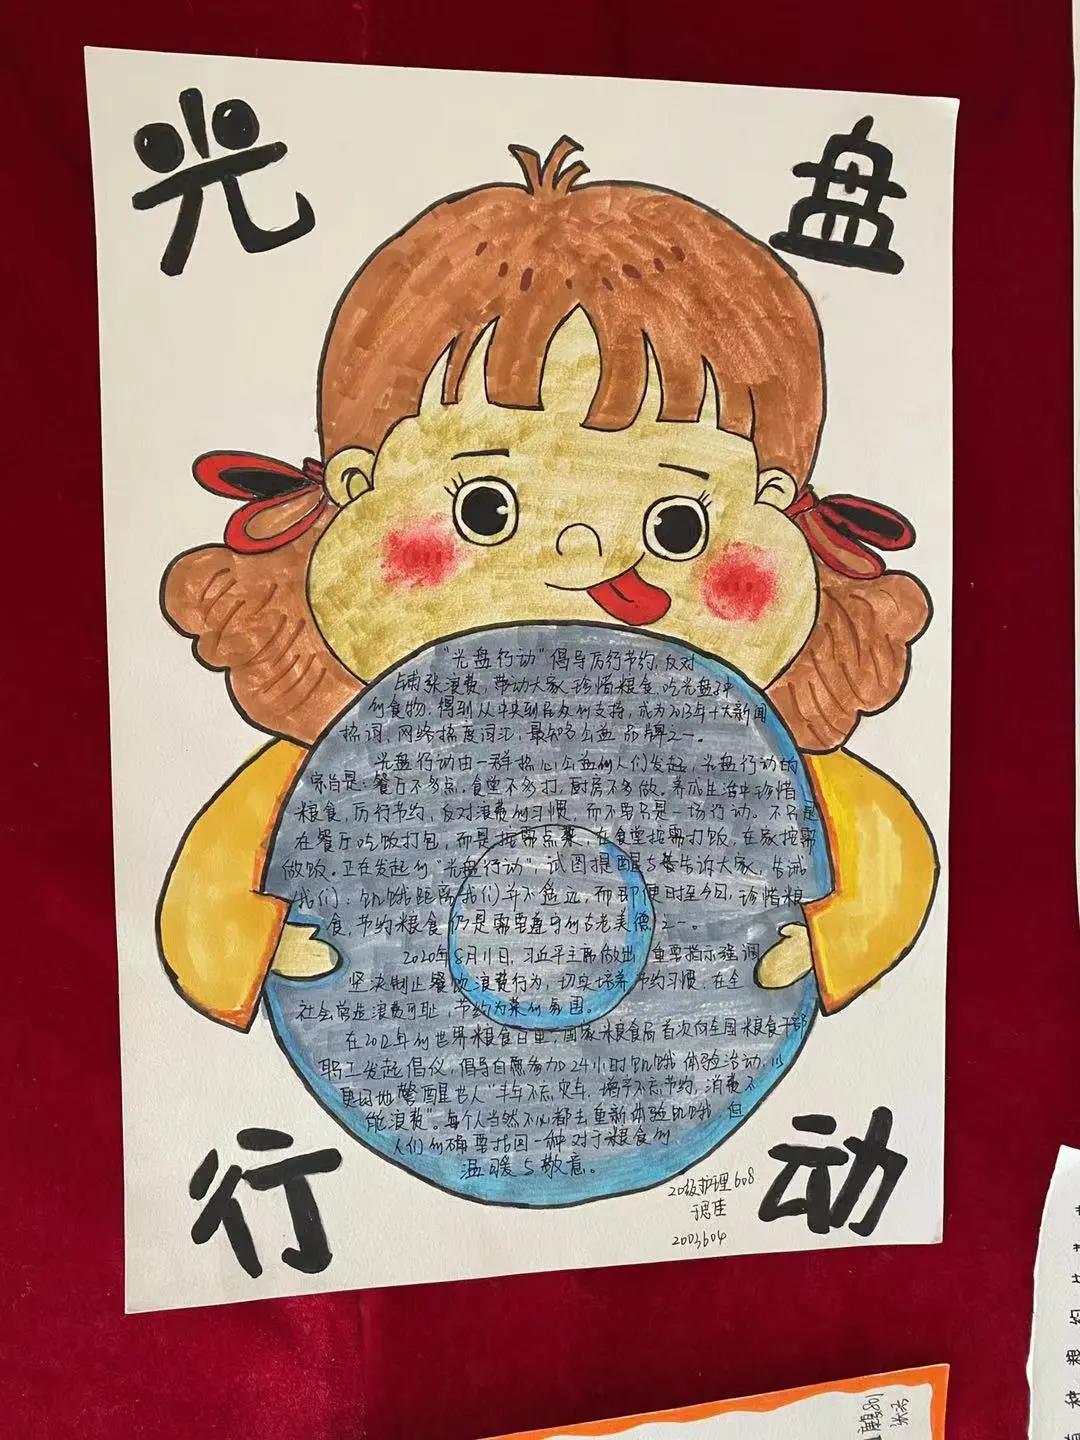 光盘
行动
"光盘行动"倡导厉行节约,反对
铺张浪费,带动大家珍惜粮食,吃光盘种
的食物,得到从中央到民众的支持,成为2013年十大新闻
热词、网络热度词汇,最知名公益品牌之一。
光盘行动由一群热心公益的人们发起,光盘行动的
宗旨是:餐厅不多点,食堂不多打,厨房不多做。养成生活中珍惜
粮食,厉行节约,反对浪费的习惯,而不要只是一场行动。不只是
在餐厅吃饭打包,而是按需点菜,在食堂按需打饭,在家按需
做饭。正在发起的"光盘行动",试图提醒与告诉大家,告诫
我们:饥饿距离我们并不遥远,而即便时至今日,珍惜粮
食,节约粮食仍是需要遵守的古老美德之一。
2020年8月11日,习近平主席做出 重要指示强调
坚决制止餐饮浪费行为,切实培养节约习惯,在全
社会营造浪费可耻,节约为荣的氛围。
在2012年的世界粮食日里,国家粮食局首次向全国粮食干部
职工发起倡仪,倡导自愿参加24小时饥饿体验活动,以
更好地警醒世人"丰年不忘灾年,增产不忘节约,消费不
能浪费"。每个人当然不必都去重新体验饥饿 但
人们的确要找回一种对于粮食的
温暖与敬意。
20级护理608
2003604